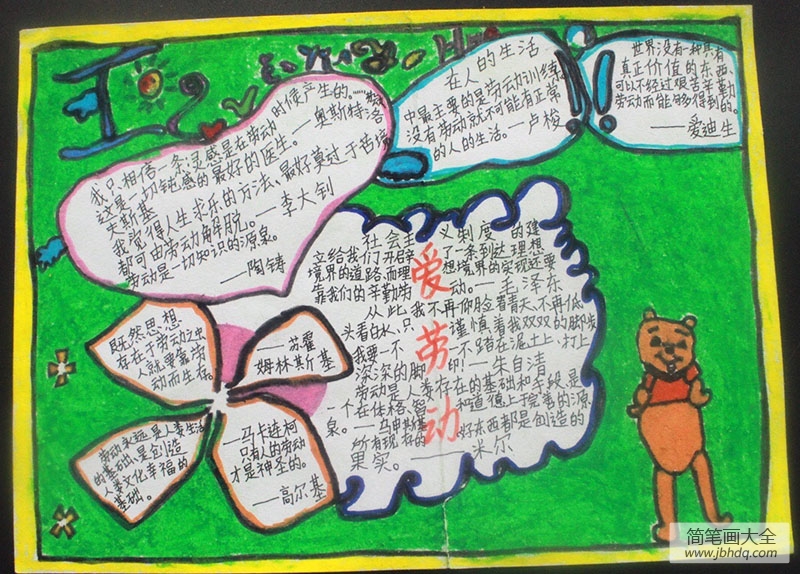 我只相信一条:灵感是在劳动时候产生的。
——奥斯特洛夫斯基
这是一切钝感的最好的医生。
我觉得人生求乐的方法,最好莫过于
都可由劳动
——李大钊
劳动是一切知识的源泉。
——陶铸
在人的生活
中最主要的是劳动训练。
没有劳动就不可能有正常
的人的生活。——卢梭
世界没有一种具有
真正价值的东西,
可以不经过艰苦辛勤
劳动而能够得到的。
——爱迪生
爱劳动
社会主义制度的建
立给我们开辟了一条到达理想
境界的道路,而理想境界的实现还要
靠我们的辛勤劳动。——毛泽东
从此我不再仰脸看青天,不再低
头看白水,只谨慎着我双双的脚步
我要一不一踏在泥土上,打上
深深的脚印!——朱自清
劳动是人类存在的基础和手段,是
一个在体格、和道德上完善的源
泉。——马申斯
所有现存的好东西都是创造的
果实。——米尔
既然思想
存在于劳动之中
人就要靠劳
动而生存。
——苏霍
姆林斯基
劳动永远是人类生活
的基础,是创造
人类文化幸福的
基础。
——马卡连柯
只有人的劳动
才是神圣的。
——高尔基
简笔画大全
www.jbhdq.com